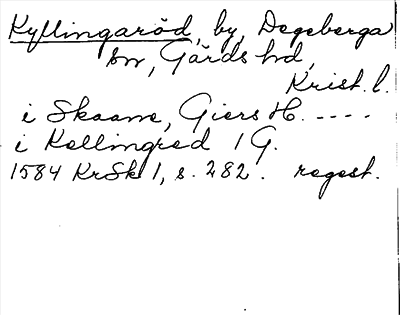 Kyllingaröd, by, Degeberga
sn, Gärds hd,
Krist. l.
i Skaane, Giers H. ----
i Kellingrød 1 G.
1584 KrSk 1, s. 282. regest.